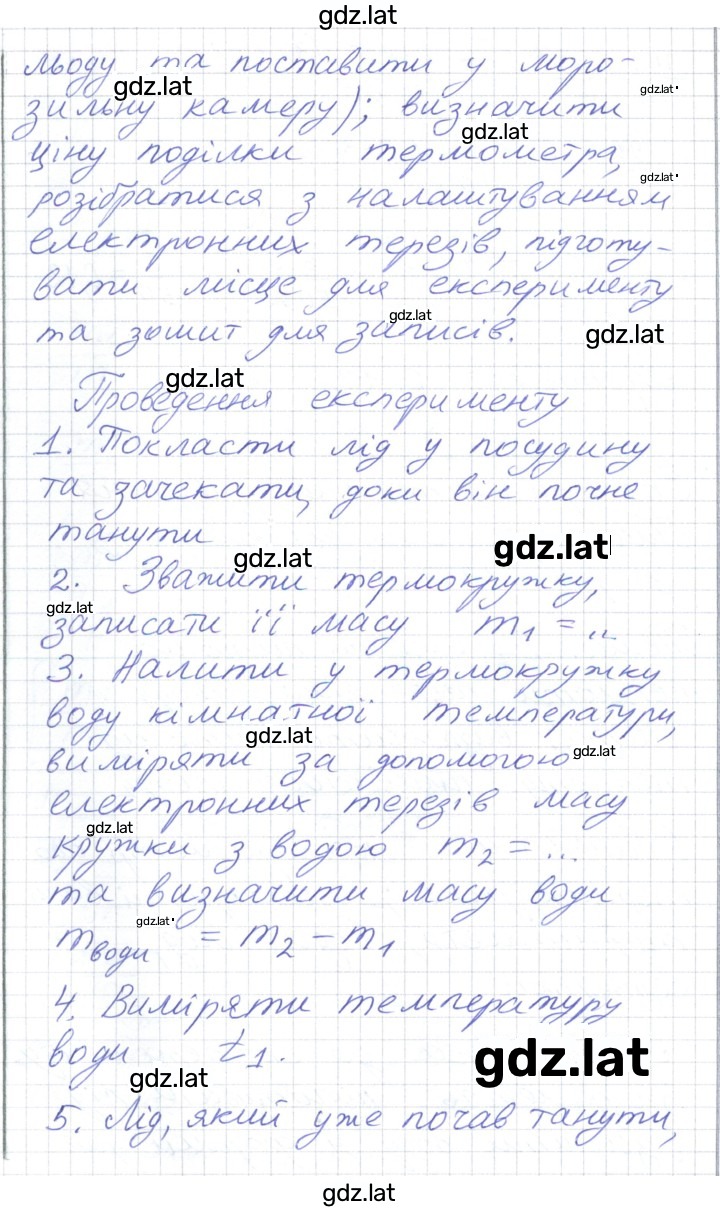 gdz.lat
льоду та поставити у моро-
gdz.lat
gdz.lat
зильну камеру); визначити
gdz.lat
ціну поділки термометра,
gdz.lat
розібратися з налаштуванням
електронних терезів, підготу-
вати місце для експерименту
gdz.lat
та зошит для записів.
gdz.lat
gdz.lat
Проведення експерименту
1. Покласти лід у посудину
та зачекати, доки він почне
танути
gdz.lat
gdz.lat
2. Зважити термокружку,
gdz.lat
записати її масу m₁ = ...
3. Налити у термокружку
воду кімнатної температури,
gdz.lat
виміряти за допомогою
gdz.lat
електронних терезів масу
gdz.lat
кружки з водою m₂ = ...
та визначити масу води
gdz.lat
m води = m₂ – m₁
4. Виміряти температуру
води t₁.
gdz.lat
gdz.lat
5. Лід, який уже почав танути,
gdz.lat